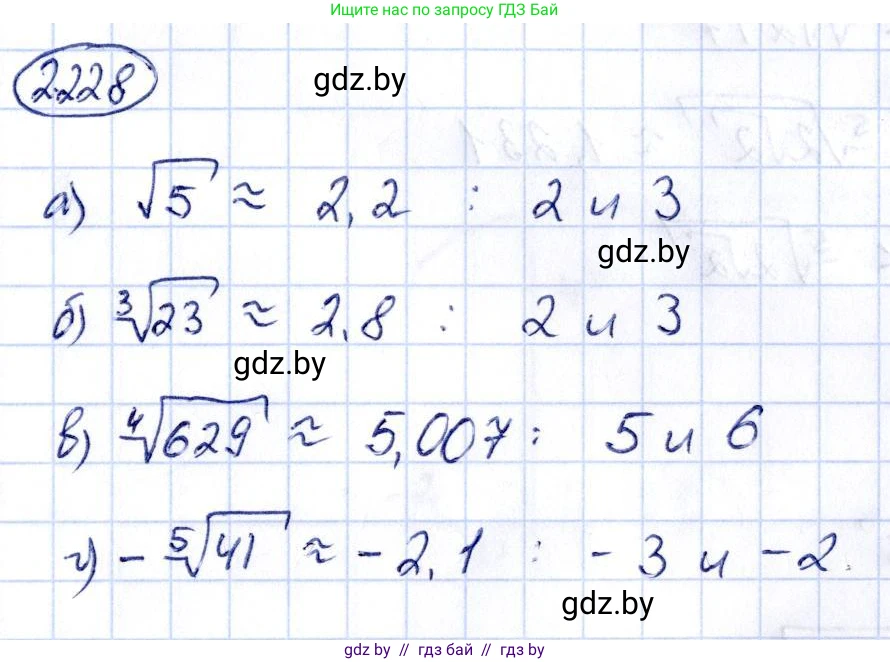 Ищите нас по запросу ГДЗ Бай
2.228
gdz.by
а) √5 ≈ 2,2 : 2 и 3
gdz.by
б) ∛23 ≈ 2,8 : 2 и 3
gdz.by
в) ∜629 ≈ 5,007 : 5 и 6
г) -⁵√41 ≈ -2,1 : -3 и -2.
gdz.by
gdz.by // гдз бай // gdz.by